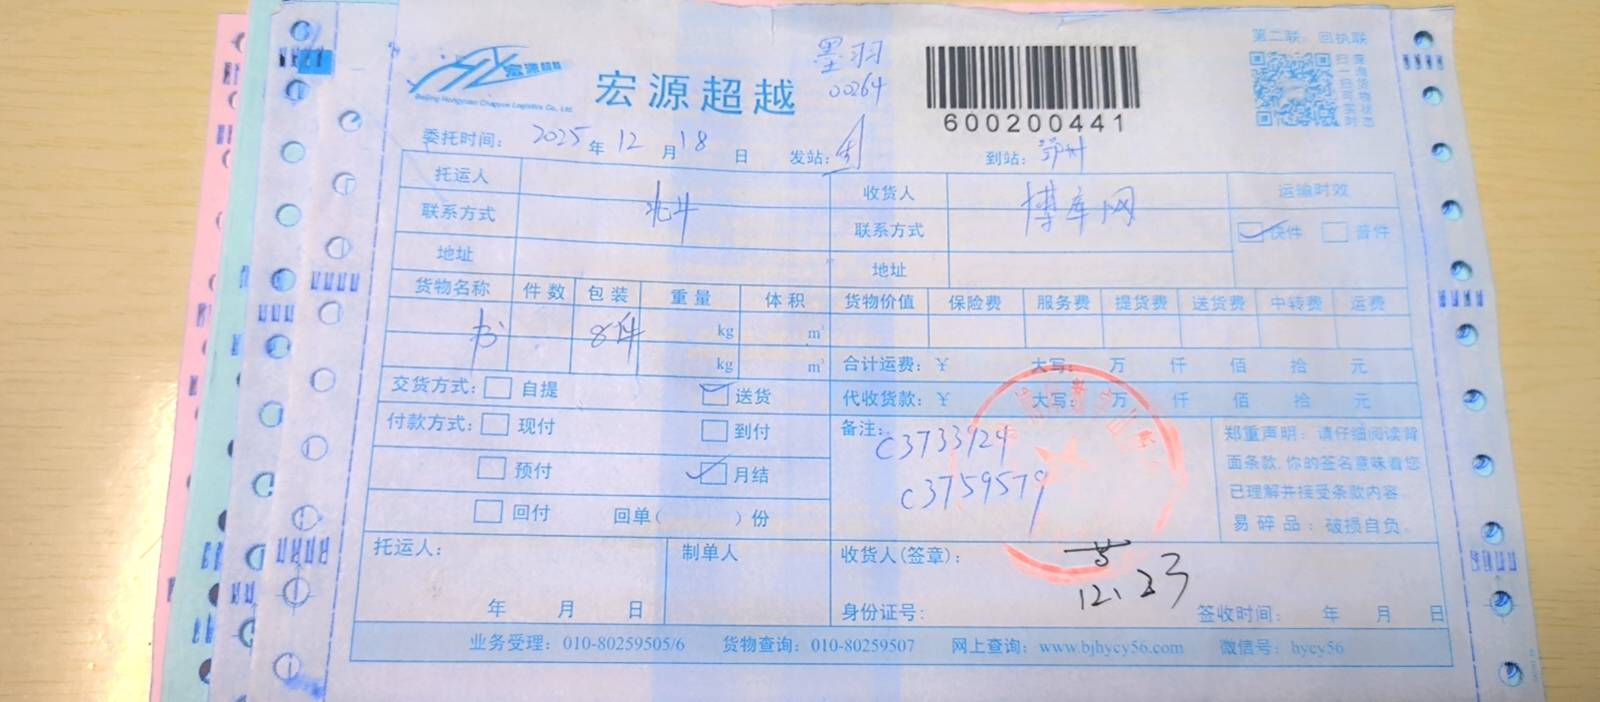 第二联：回执联
宏源超越
Beijing Hongyuan Chaoyue Logistics Co., Ltd.
宏源超越
墨羽
00264
600200441
扫一扫
委托时间： 2025 年 12 月 18 日 发站： 到站： 鄂州
托运人 收货人 博库网 运输时效
联系方式 北斗 联系方式 快件 普件
地址 地址
货物名称 件数 包装 重量 体积 货物价值 保险费 服务费 提货费 送货费 中转费 运费
书 8件 kg m³
kg m³ 合计运费： ¥ 大写： 万 仟 佰 拾 元
交货方式： 自提 送货 代收货款： ¥ 大写： 万 仟 佰 拾 元
付款方式： 现付 到付 备注： C3733924 郑重声明：请仔细阅读背
预付 月结 C3759579 面条款，你的签名意味着您
已理解并接受条款内容
回付 回单（ ）份 易碎品：破损自负。
托运人： 制单人 收货人(签章)：
12.23
年 月 日 身份证号： 签收时间： 年 月 日
业务受理：010-80259505/6 货物查询：010-80259507 网上查询：www.bjhycy56.com 微信号：hycy56